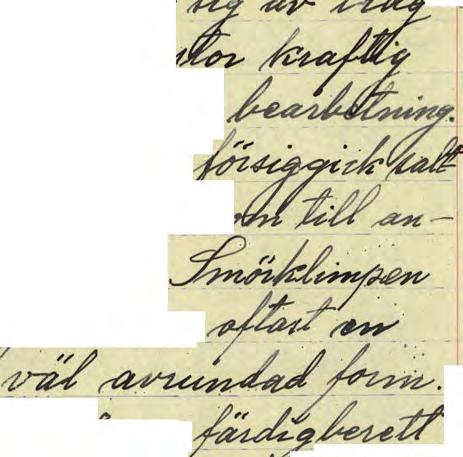 sig av
kraftig
bearbetning.
försiggick salt
till an-
Smörklimpen
oftast en
väl avrundad form.
färdigberett